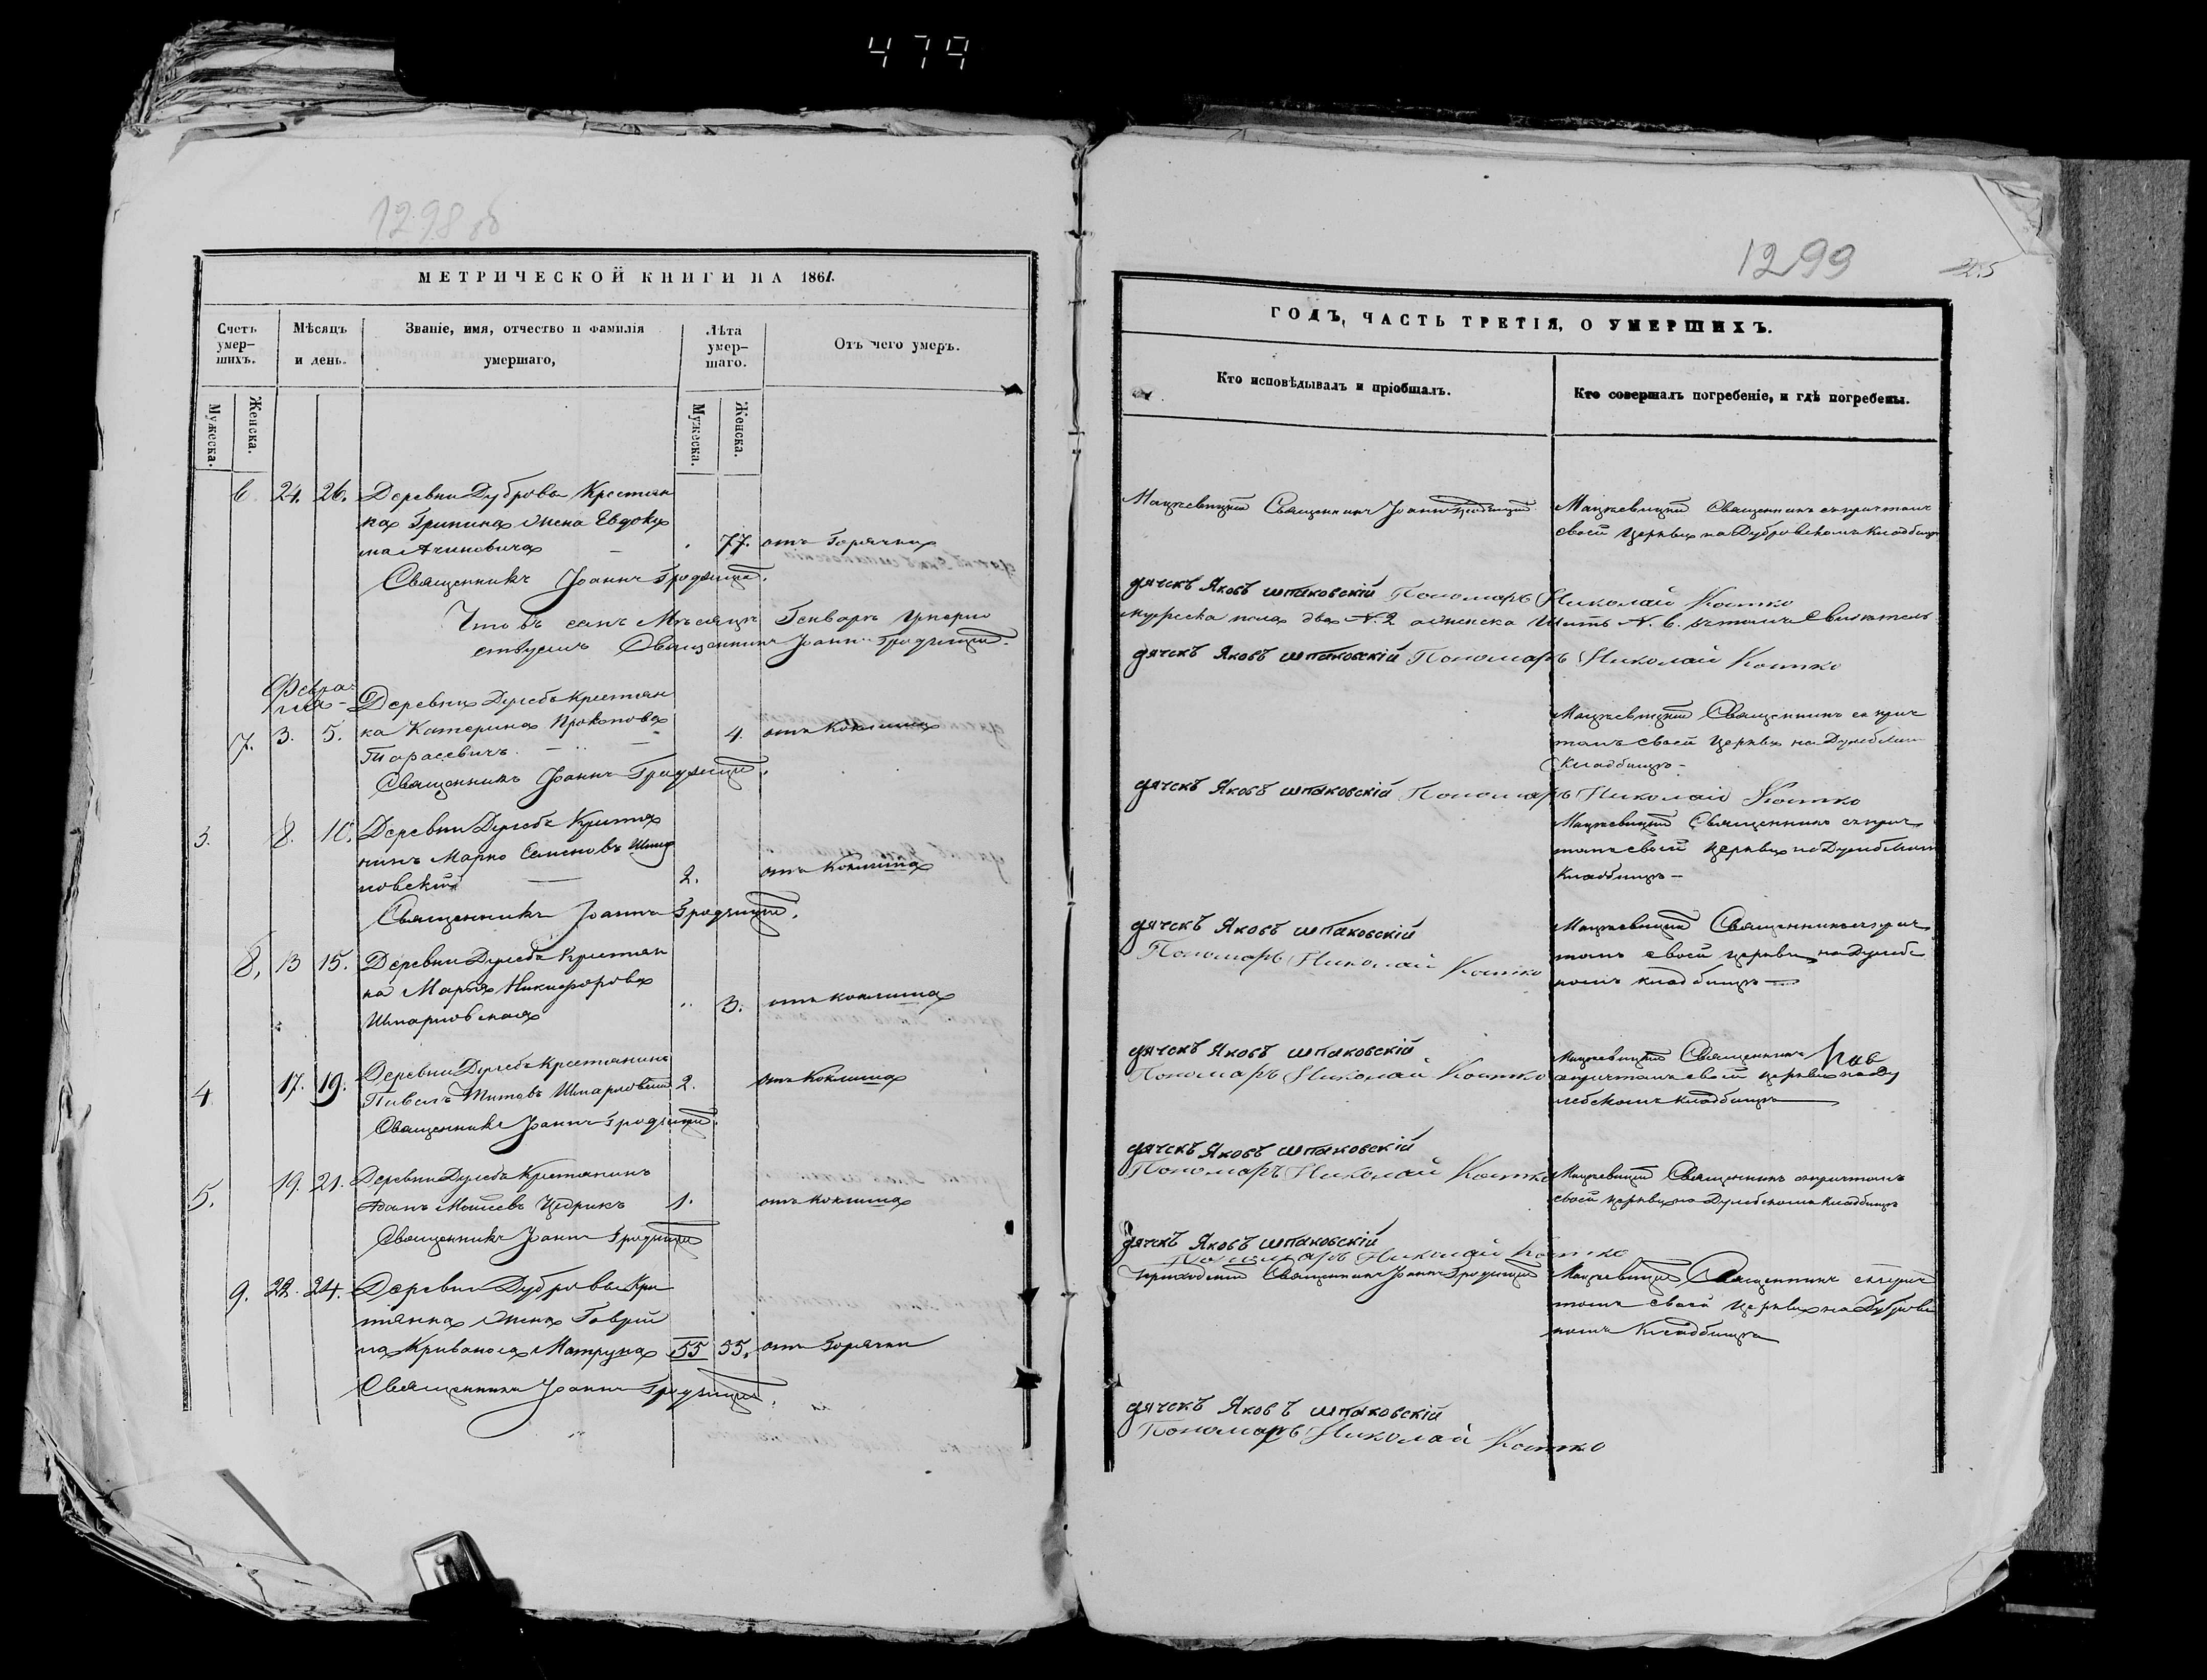 479
1298 об
МЕТРИЧЕСКОЙ КНИГИ НА 1861.
Счетъ умер-шихъ.
Мѣсяцъ и день.
Званіе, имя, отчество и фамилія умершаго,
Лѣта умер-шаго.
Отъ чего умеръ.
Мужеска.
Женска.
Мужеска.
Женска.
6. 24. 26. Деревни Дуброва Крестьян
ка жена Евдоки
77. отъ Горячки
Священникъ Іоаннъ Гродзицкій.
Что въ семъ Мѣсяцѣ Генварѣ
Священникъ Іоаннъ Гродзицкій.
Февра-
ля
Деревни Дулебъ Крестьян
7. 3. 5. ка Катерина Прокопова
4. отъ Коклюша
Тарасевичъ
Священникъ Іоаннъ Гродзицкій.
3. 8. 10. Деревни Дулебъ Крестья
нинъ Марко Семеновъ
новскій
2. отъ Коклюша
Священникъ Іоаннъ Гродзицкій.
8. 13 15. Деревни Дулебъ Крестьян
ка Марья Никифорова
3. отъ коклюша
Деревни Дулебъ Крестьянинъ
4 17. 19. Титовъ 2. отъ Коклюша
Священникъ Іоаннъ Гродзицкій.
5. 19. 21. Деревни Дулебъ Крестьянинъ
Моисеевъ Цедрикъ 1. отъ коклюша
Священникъ Іоаннъ Гродзицкій
9. 22. 24. Деревни Дубровы Кре
стьянка жена Гаврі
ла Кривоноса Матруна 55 55. отъ Горячки
Священникъ Іоаннъ Гродзицкій.
1299
25
ГОДЪ, ЧАСТЬ ТРЕТІЯ, О УМЕРШИХЪ.
Кто исповѣдывалъ и пріобщалъ.
Кто совершалъ погребеніе, и гдѣ погребены.
Мацкевицкій Священникъ Іоаннъ Гродзицкій
Мацкевицкій Священникъ съ причтомъ
своей церкви на Дубровскомъ Кладбищѣ
дячекъ Яковъ шпаковскій Пономарь Николай Костко
мужеска пола два N. 2 а женска шесть N. 6. въ томъ
дячекъ Яковъ шпаковскій Пономарь Николай Костко
Мацкевицкій Священникъ съ прич
томъ своей церкви на
Кладбищѣ
дячекъ Яковъ шпаковскій Пономарь Николай Костко
Мацкевицкій Священникъ съ прич
томъ своей церкви на
Кладбищѣ
дячекъ Яковъ шпаковскій
Пономарь Николай Костко
Мацкевицкій Священникъ съ прич
томъ своей церкви на Дулебс
комъ кладбищѣ
дячекъ Яковъ шпаковскій
Пономарь Николай Костко
Мацкевицкій Священникъ
съ причтомъ своей церкви на Ду
лебскомъ кладбищѣ
дячекъ Яковъ шпаковскій
Пономарь Николай Костко
Мацкевицкій Священникъ съ причтомъ
своей церкви на Дулебскомъ Кладбищѣ
дячекъ Яковъ шпаковскій
Пономарь Николай Костко
Приходскій Священникъ Іоаннъ Гродзицкій
Мацкевицкій Священникъ съ прич
томъ своей церкви на Дубровс
комъ Кладбищѣ
дячекъ Яковъ шпаковскій
Пономарь Николай Костко